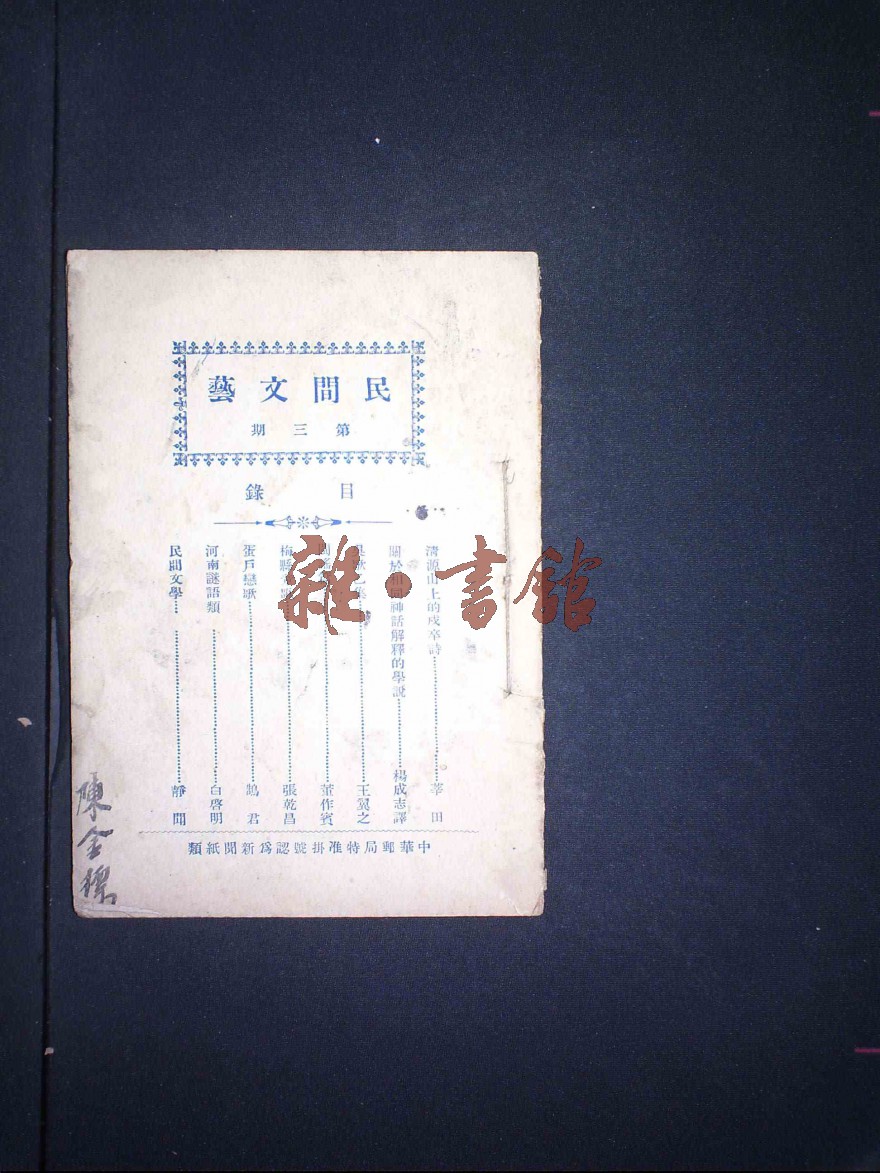 民間文藝
第三期
目錄
清源山上的戍卒詩……莘田
關於相同神話解釋的學說……楊成志譯
……王翼之
……董作賓
梅縣……張乾昌
蛋戶戀歌……鵠君
河南謎語類……白啓明
民間文學……靜聞
中華郵局特准掛號認爲新聞紙類
陳金
雜·書館